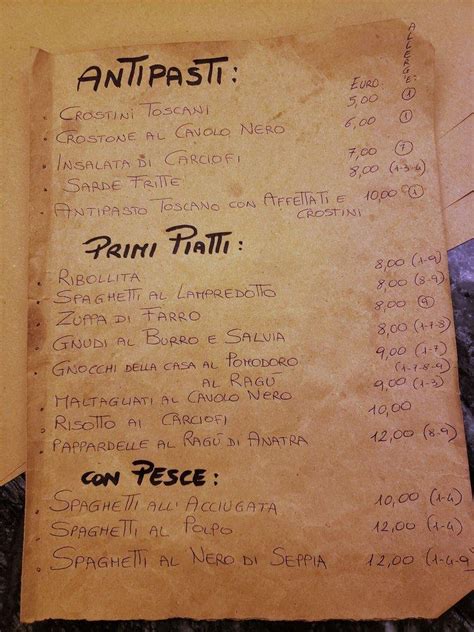 ALLERGE:
ANTIPASTI:
EURO
CROSTINI TOSCANI 5,00 (1)
CROSTONE AL CAVOLO NERO 6,00 (1)
INSALATA DI CARCIOFI 7,00 (7)
SARDE FRITTE 8,00 (1-3-4)
ANTIPASTO TOSCANO CON AFFETTATI E 10,00 (1)
CROSTINI
PRIMI PIATTI:
RIBOLLITA 8,00 (1-9)
SPAGHETTI AL LAMPREDOTTO 8,00 (8-9)
ZUPPA DI FARRO 8,00 (9)
GNUDI AL BURRO E SALVIA 8,00 (1-7-8)
GNOCCHI DELLA CASA AL POMODORO 9,00 (1-7)
AL RAGÙ (1-7-8-9)
MALTAGLIATI AL CAVOLO NERO 9,00 (1-3)
RISOTTO AI CARCIOFI 10,00
PAPPARDELLE AL RAGÙ DI ANATRA 12,00 (8-9)
CON PESCE:
SPAGHETTI ALL'ACCIUGATA 10,00 (1-4)
SPAGHETTI AL POLPO 12,00 (1-4)
SPAGHETTI AL NERO DI SEPPIA 12,00 (1-4-9)